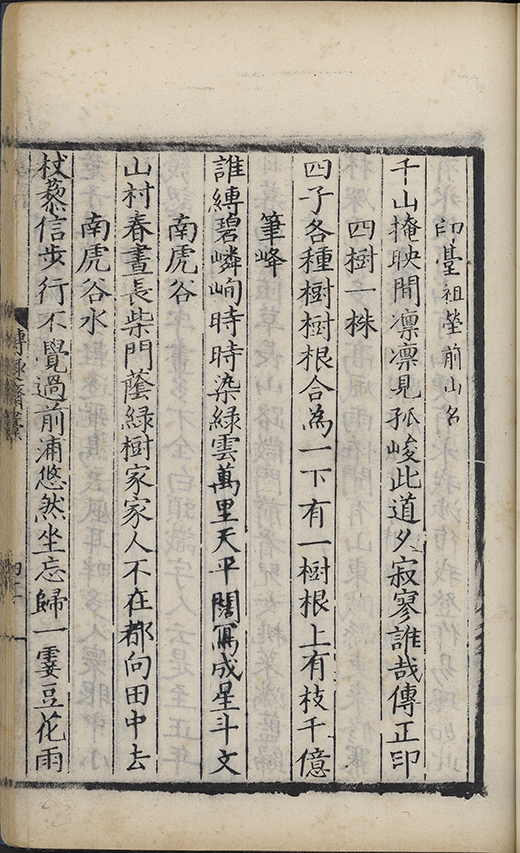 印臺祖塋前山名
千山掩映間凛凛見孤峻此道久寂寥誰哉傳正印
四樹一株
四子各種樹樹根合為一下有一樹根上有枝千億
筆峰
誰縛碧嶙峋時時染綠雲萬里天平闊寫成星斗文
南虎谷
山村春晝長柴門蔭綠樹家家人不在都向田中去
南虎谷水
杖藜信步行不覺過前浦悠然坐忘歸一霎豆花雨